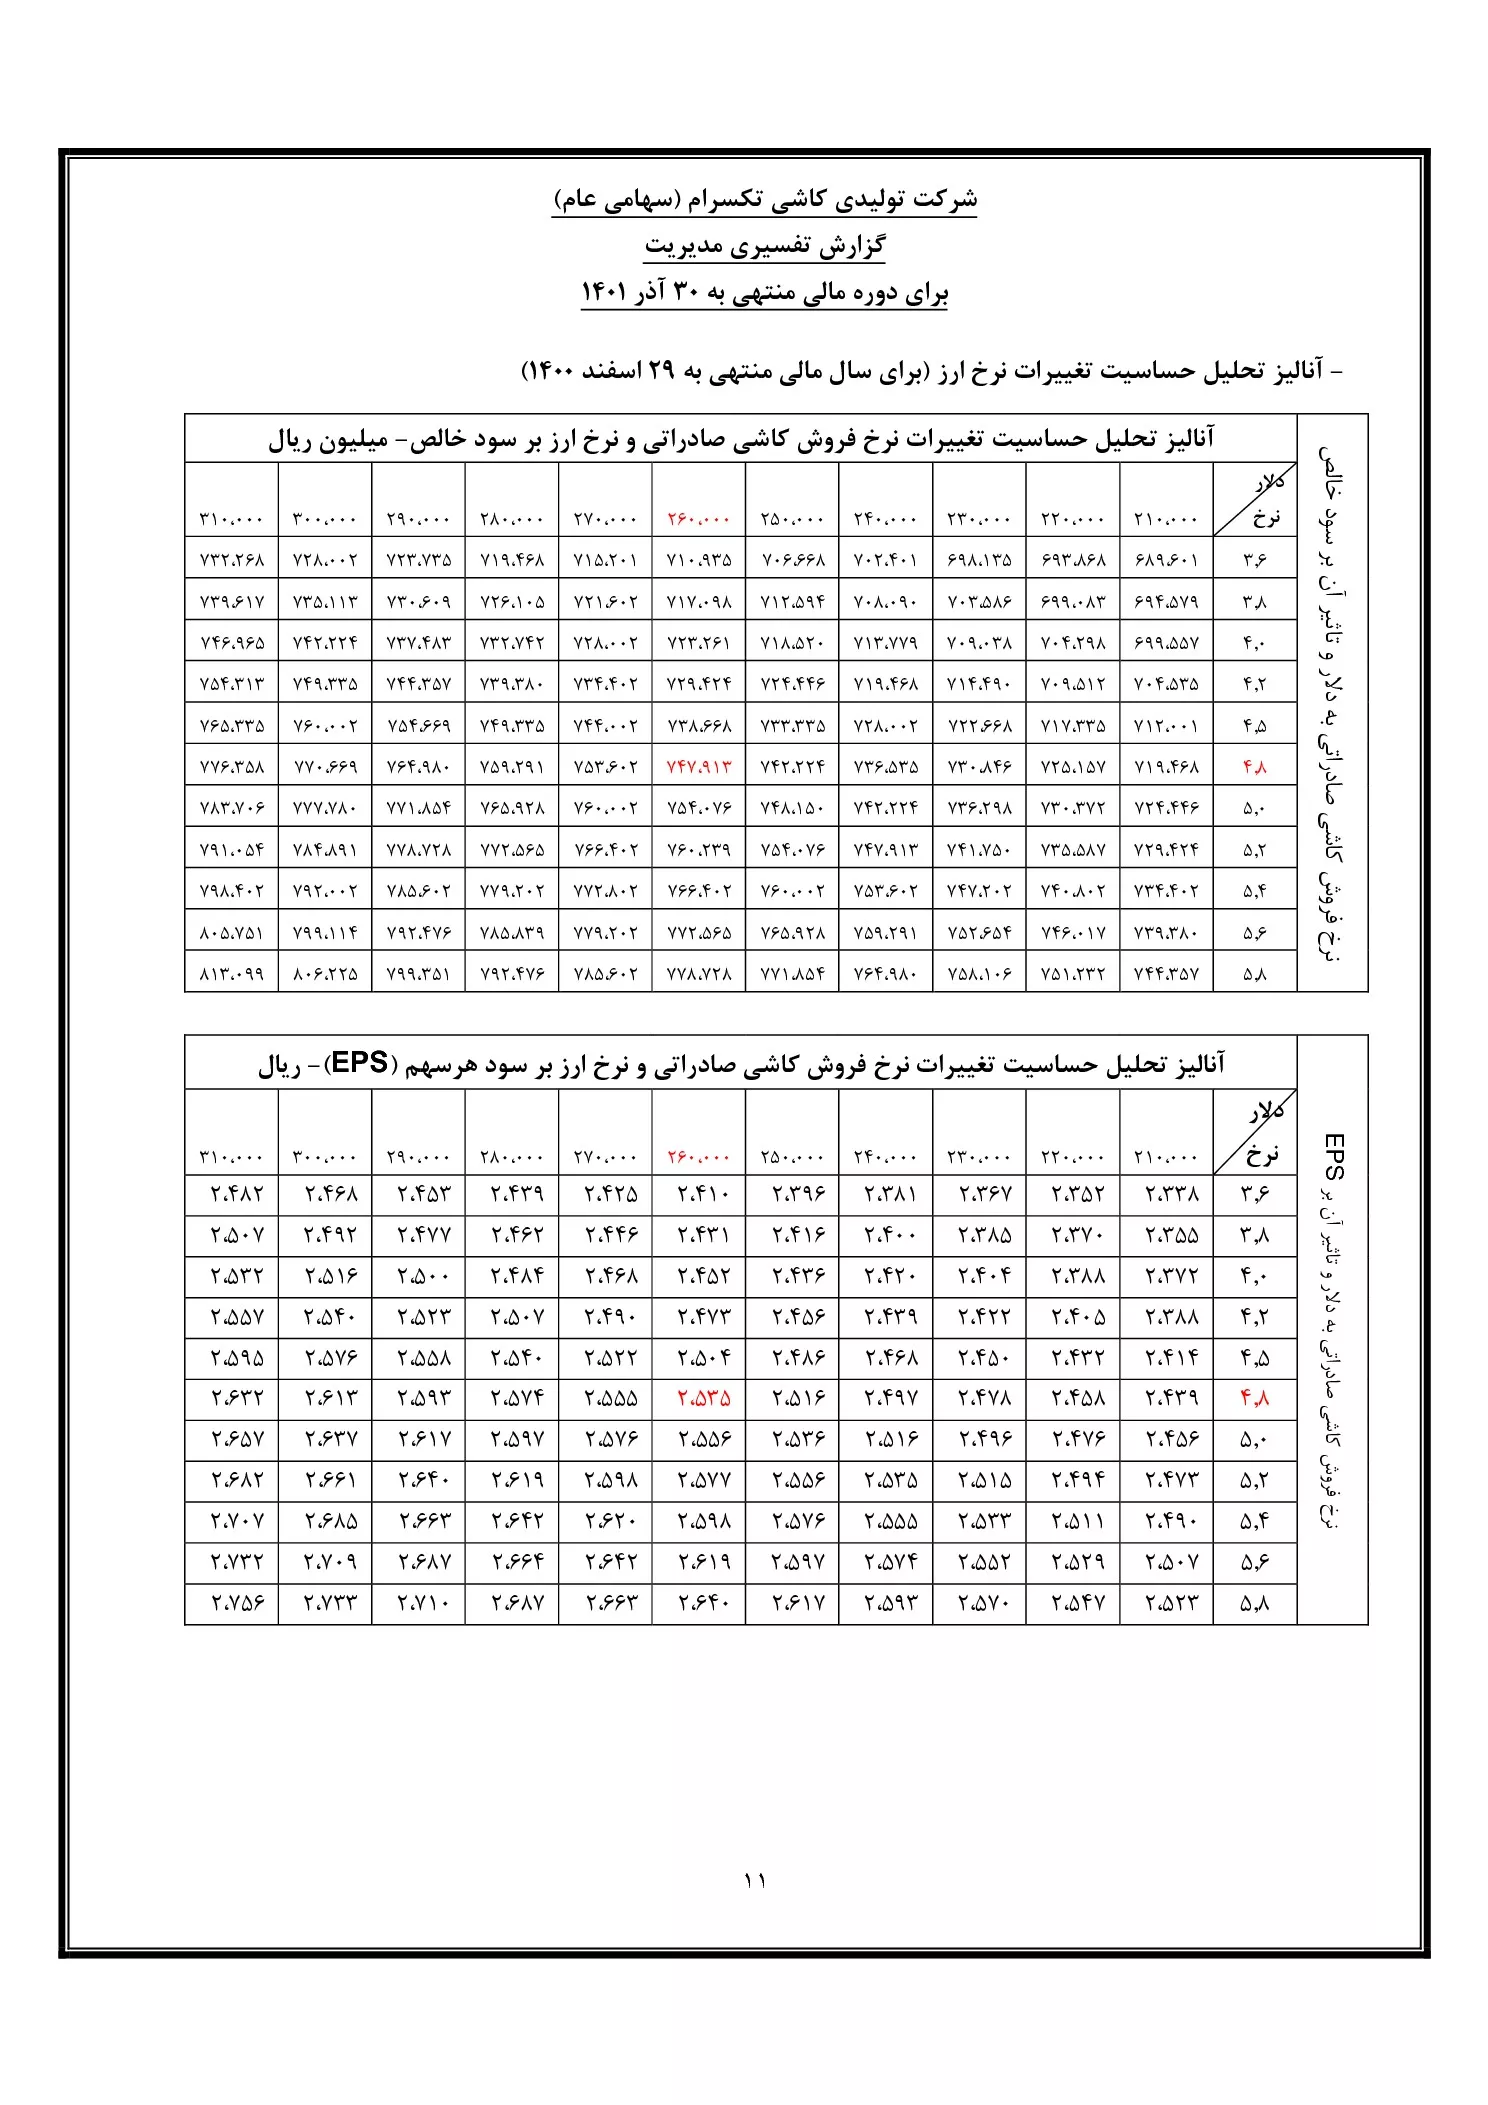 شرکت تولیدی کاشی تکسرام (سهامی عام)
گزارش تفسیری مدیریت
برای دوره مالی منتهی به ۳۰ آذر ۱۴۰۱
- آنالیز تحلیل حساسیت تغییرات نرخ ارز (برای سال مالی منتهی به ۲۹ اسفند ۱۴۰۰)
نرخ فروش کاشی صادراتی به دلار و تاثیر آن بر سود خالص
آنالیز تحلیل حساسیت تغییرات نرخ فروش کاشی صادراتی و نرخ ارز بر سود خالص- میلیون ریال
دلار
نرخ ۲۱۰،۰۰۰ ۲۲۰،۰۰۰ ۲۳۰،۰۰۰ ۲۴۰،۰۰۰ ۲۵۰،۰۰۰ ۲۶۰،۰۰۰ ۲۷۰،۰۰۰ ۲۸۰،۰۰۰ ۲۹۰،۰۰۰ ۳۰۰،۰۰۰ ۳۱۰،۰۰۰
۳٫۶ ۶۸۹،۶۰۱ ۶۹۳،۸۶۸ ۶۹۸،۱۳۵ ۷۰۲،۴۰۱ ۷۰۶،۶۶۸ ۷۱۰،۹۳۵ ۷۱۵،۲۰۱ ۷۱۹،۴۶۸ ۷۲۳،۷۳۵ ۷۲۸،۰۰۲ ۷۳۲،۲۶۸
۳٫۸ ۶۹۴،۵۷۹ ۶۹۹،۰۸۳ ۷۰۳،۵۸۶ ۷۰۸،۰۹۰ ۷۱۲،۵۹۴ ۷۱۷،۰۹۸ ۷۲۱،۶۰۲ ۷۲۶،۱۰۵ ۷۳۰،۶۰۹ ۷۳۵،۱۱۳ ۷۳۹،۶۱۷
۴٫۰ ۶۹۹،۵۵۷ ۷۰۴،۲۹۸ ۷۰۹،۰۳۸ ۷۱۳،۷۷۹ ۷۱۸،۵۲۰ ۷۲۳،۲۶۱ ۷۲۸،۰۰۲ ۷۳۲،۷۴۲ ۷۳۷،۴۸۳ ۷۴۲،۲۲۴ ۷۴۶،۹۶۵
۴٫۲ ۷۰۴،۵۳۵ ۷۰۹،۵۱۲ ۷۱۴،۴۹۰ ۷۱۹،۴۶۸ ۷۲۴،۴۴۶ ۷۲۹،۴۲۴ ۷۳۴،۴۰۲ ۷۳۹،۳۸۰ ۷۴۴،۳۵۷ ۷۴۹،۳۳۵ ۷۵۴،۳۱۳
۴٫۵ ۷۱۲،۰۰۱ ۷۱۷،۳۳۵ ۷۲۲،۶۶۸ ۷۲۸،۰۰۲ ۷۳۳،۳۳۵ ۷۳۸،۶۶۸ ۷۴۴،۰۰۲ ۷۴۹،۳۳۵ ۷۵۴،۶۶۹ ۷۶۰،۰۰۲ ۷۶۵،۳۳۵
۴٫۸ ۷۱۹،۴۶۸ ۷۲۵،۱۵۷ ۷۳۰،۸۴۶ ۷۳۶،۵۳۵ ۷۴۲،۲۲۴ ۷۴۷،۹۱۳ ۷۵۳،۶۰۲ ۷۵۹،۲۹۱ ۷۶۴،۹۸۰ ۷۷۰،۶۶۹ ۷۷۶،۳۵۸
۵٫۰ ۷۲۴،۴۴۶ ۷۳۰،۳۷۲ ۷۳۶،۲۹۸ ۷۴۲،۲۲۴ ۷۴۸،۱۵۰ ۷۵۴،۰۷۶ ۷۶۰،۰۰۲ ۷۶۵،۹۲۸ ۷۷۱،۸۵۴ ۷۷۷،۷۸۰ ۷۸۳،۷۰۶
۵٫۲ ۷۲۹،۴۲۴ ۷۳۵،۵۸۷ ۷۴۱،۷۵۰ ۷۴۷،۹۱۳ ۷۵۴،۰۷۶ ۷۶۰،۲۳۹ ۷۶۶،۴۰۲ ۷۷۲،۵۶۵ ۷۷۸،۷۲۸ ۷۸۴،۸۹۱ ۷۹۱،۰۵۴
۵٫۴ ۷۳۴،۴۰۲ ۷۴۰،۸۰۲ ۷۴۷،۲۰۲ ۷۵۳،۶۰۲ ۷۶۰،۰۰۲ ۷۶۶،۴۰۲ ۷۷۲،۸۰۲ ۷۷۹،۲۰۲ ۷۸۵،۶۰۲ ۷۹۲،۰۰۲ ۷۹۸،۴۰۲
۵٫۶ ۷۳۹،۳۸۰ ۷۴۶،۰۱۷ ۷۵۲،۶۵۴ ۷۵۹،۲۹۱ ۷۶۵،۹۲۸ ۷۷۲،۵۶۵ ۷۷۹،۲۰۲ ۷۸۵،۸۳۹ ۷۹۲،۴۷۶ ۷۹۹،۱۱۴ ۸۰۵،۷۵۱
۵٫۸ ۷۴۴،۳۵۷ ۷۵۱،۲۳۲ ۷۵۸،۱۰۶ ۷۶۴،۹۸۰ ۷۷۱،۸۵۴ ۷۷۸،۷۲۸ ۷۸۵،۶۰۲ ۷۹۲،۴۷۶ ۷۹۹،۳۵۱ ۸۰۶،۲۲۵ ۸۱۳،۰۹۹
نرخ فروش کاشی صادراتی به دلار و تاثیر آن بر EPS
آنالیز تحلیل حساسیت تغییرات نرخ فروش کاشی صادراتی و نرخ ارز بر سود هرسهم (EPS)- ریال
دلار
نرخ ۲۱۰،۰۰۰ ۲۲۰،۰۰۰ ۲۳۰،۰۰۰ ۲۴۰،۰۰۰ ۲۵۰،۰۰۰ ۲۶۰،۰۰۰ ۲۷۰،۰۰۰ ۲۸۰،۰۰۰ ۲۹۰،۰۰۰ ۳۰۰،۰۰۰ ۳۱۰،۰۰۰
۳٫۶ ۲،۳۳۸ ۲،۳۵۲ ۲،۳۶۷ ۲،۳۸۱ ۲،۳۹۶ ۲،۴۱۰ ۲،۴۲۵ ۲،۴۳۹ ۲،۴۵۳ ۲،۴۶۸ ۲،۴۸۲
۳٫۸ ۲،۳۵۵ ۲،۳۷۰ ۲،۳۸۵ ۲،۴۰۰ ۲،۴۱۶ ۲،۴۳۱ ۲،۴۴۶ ۲،۴۶۲ ۲،۴۷۷ ۲،۴۹۲ ۲،۵۰۷
۴٫۰ ۲،۳۷۲ ۲،۳۸۸ ۲،۴۰۴ ۲،۴۲۰ ۲،۴۳۶ ۲،۴۵۲ ۲،۴۶۸ ۲،۴۸۴ ۲،۵۰۰ ۲،۵۱۶ ۲،۵۳۲
۴٫۲ ۲،۳۸۸ ۲،۴۰۵ ۲،۴۲۲ ۲،۴۳۹ ۲،۴۵۶ ۲،۴۷۳ ۲،۴۹۰ ۲،۵۰۷ ۲،۵۲۳ ۲،۵۴۰ ۲،۵۵۷
۴٫۵ ۲،۴۱۴ ۲،۴۳۲ ۲،۴۵۰ ۲،۴۶۸ ۲،۴۸۶ ۲،۵۰۴ ۲،۵۲۲ ۲،۵۴۰ ۲،۵۵۸ ۲،۵۷۶ ۲،۵۹۵
۴٫۸ ۲،۴۳۹ ۲،۴۵۸ ۲،۴۷۸ ۲،۴۹۷ ۲،۵۱۶ ۲،۵۳۵ ۲،۵۵۵ ۲،۵۷۴ ۲،۵۹۳ ۲،۶۱۳ ۲،۶۳۲
۵٫۰ ۲،۴۵۶ ۲،۴۷۶ ۲،۴۹۶ ۲،۵۱۶ ۲،۵۳۶ ۲،۵۵۶ ۲،۵۷۶ ۲،۵۹۷ ۲،۶۱۷ ۲،۶۳۷ ۲،۶۵۷
۵٫۲ ۲،۴۷۳ ۲،۴۹۴ ۲،۵۱۵ ۲،۵۳۵ ۲،۵۵۶ ۲،۵۷۷ ۲،۵۹۸ ۲،۶۱۹ ۲،۶۴۰ ۲،۶۶۱ ۲،۶۸۲
۵٫۴ ۲،۴۹۰ ۲،۵۱۱ ۲،۵۳۳ ۲،۵۵۵ ۲،۵۷۶ ۲،۵۹۸ ۲،۶۲۰ ۲،۶۴۲ ۲،۶۶۳ ۲،۶۸۵ ۲،۷۰۷
۵٫۶ ۲،۵۰۷ ۲،۵۲۹ ۲،۵۵۲ ۲،۵۷۴ ۲،۵۹۷ ۲،۶۱۹ ۲،۶۴۲ ۲،۶۶۴ ۲،۶۸۷ ۲،۷۰۹ ۲،۷۳۲
۵٫۸ ۲،۵۲۳ ۲،۵۴۷ ۲،۵۷۰ ۲،۵۹۳ ۲،۶۱۷ ۲،۶۴۰ ۲،۶۶۳ ۲،۶۸۷ ۲،۷۱۰ ۲،۷۳۳ ۲،۷۵۶
۱۱